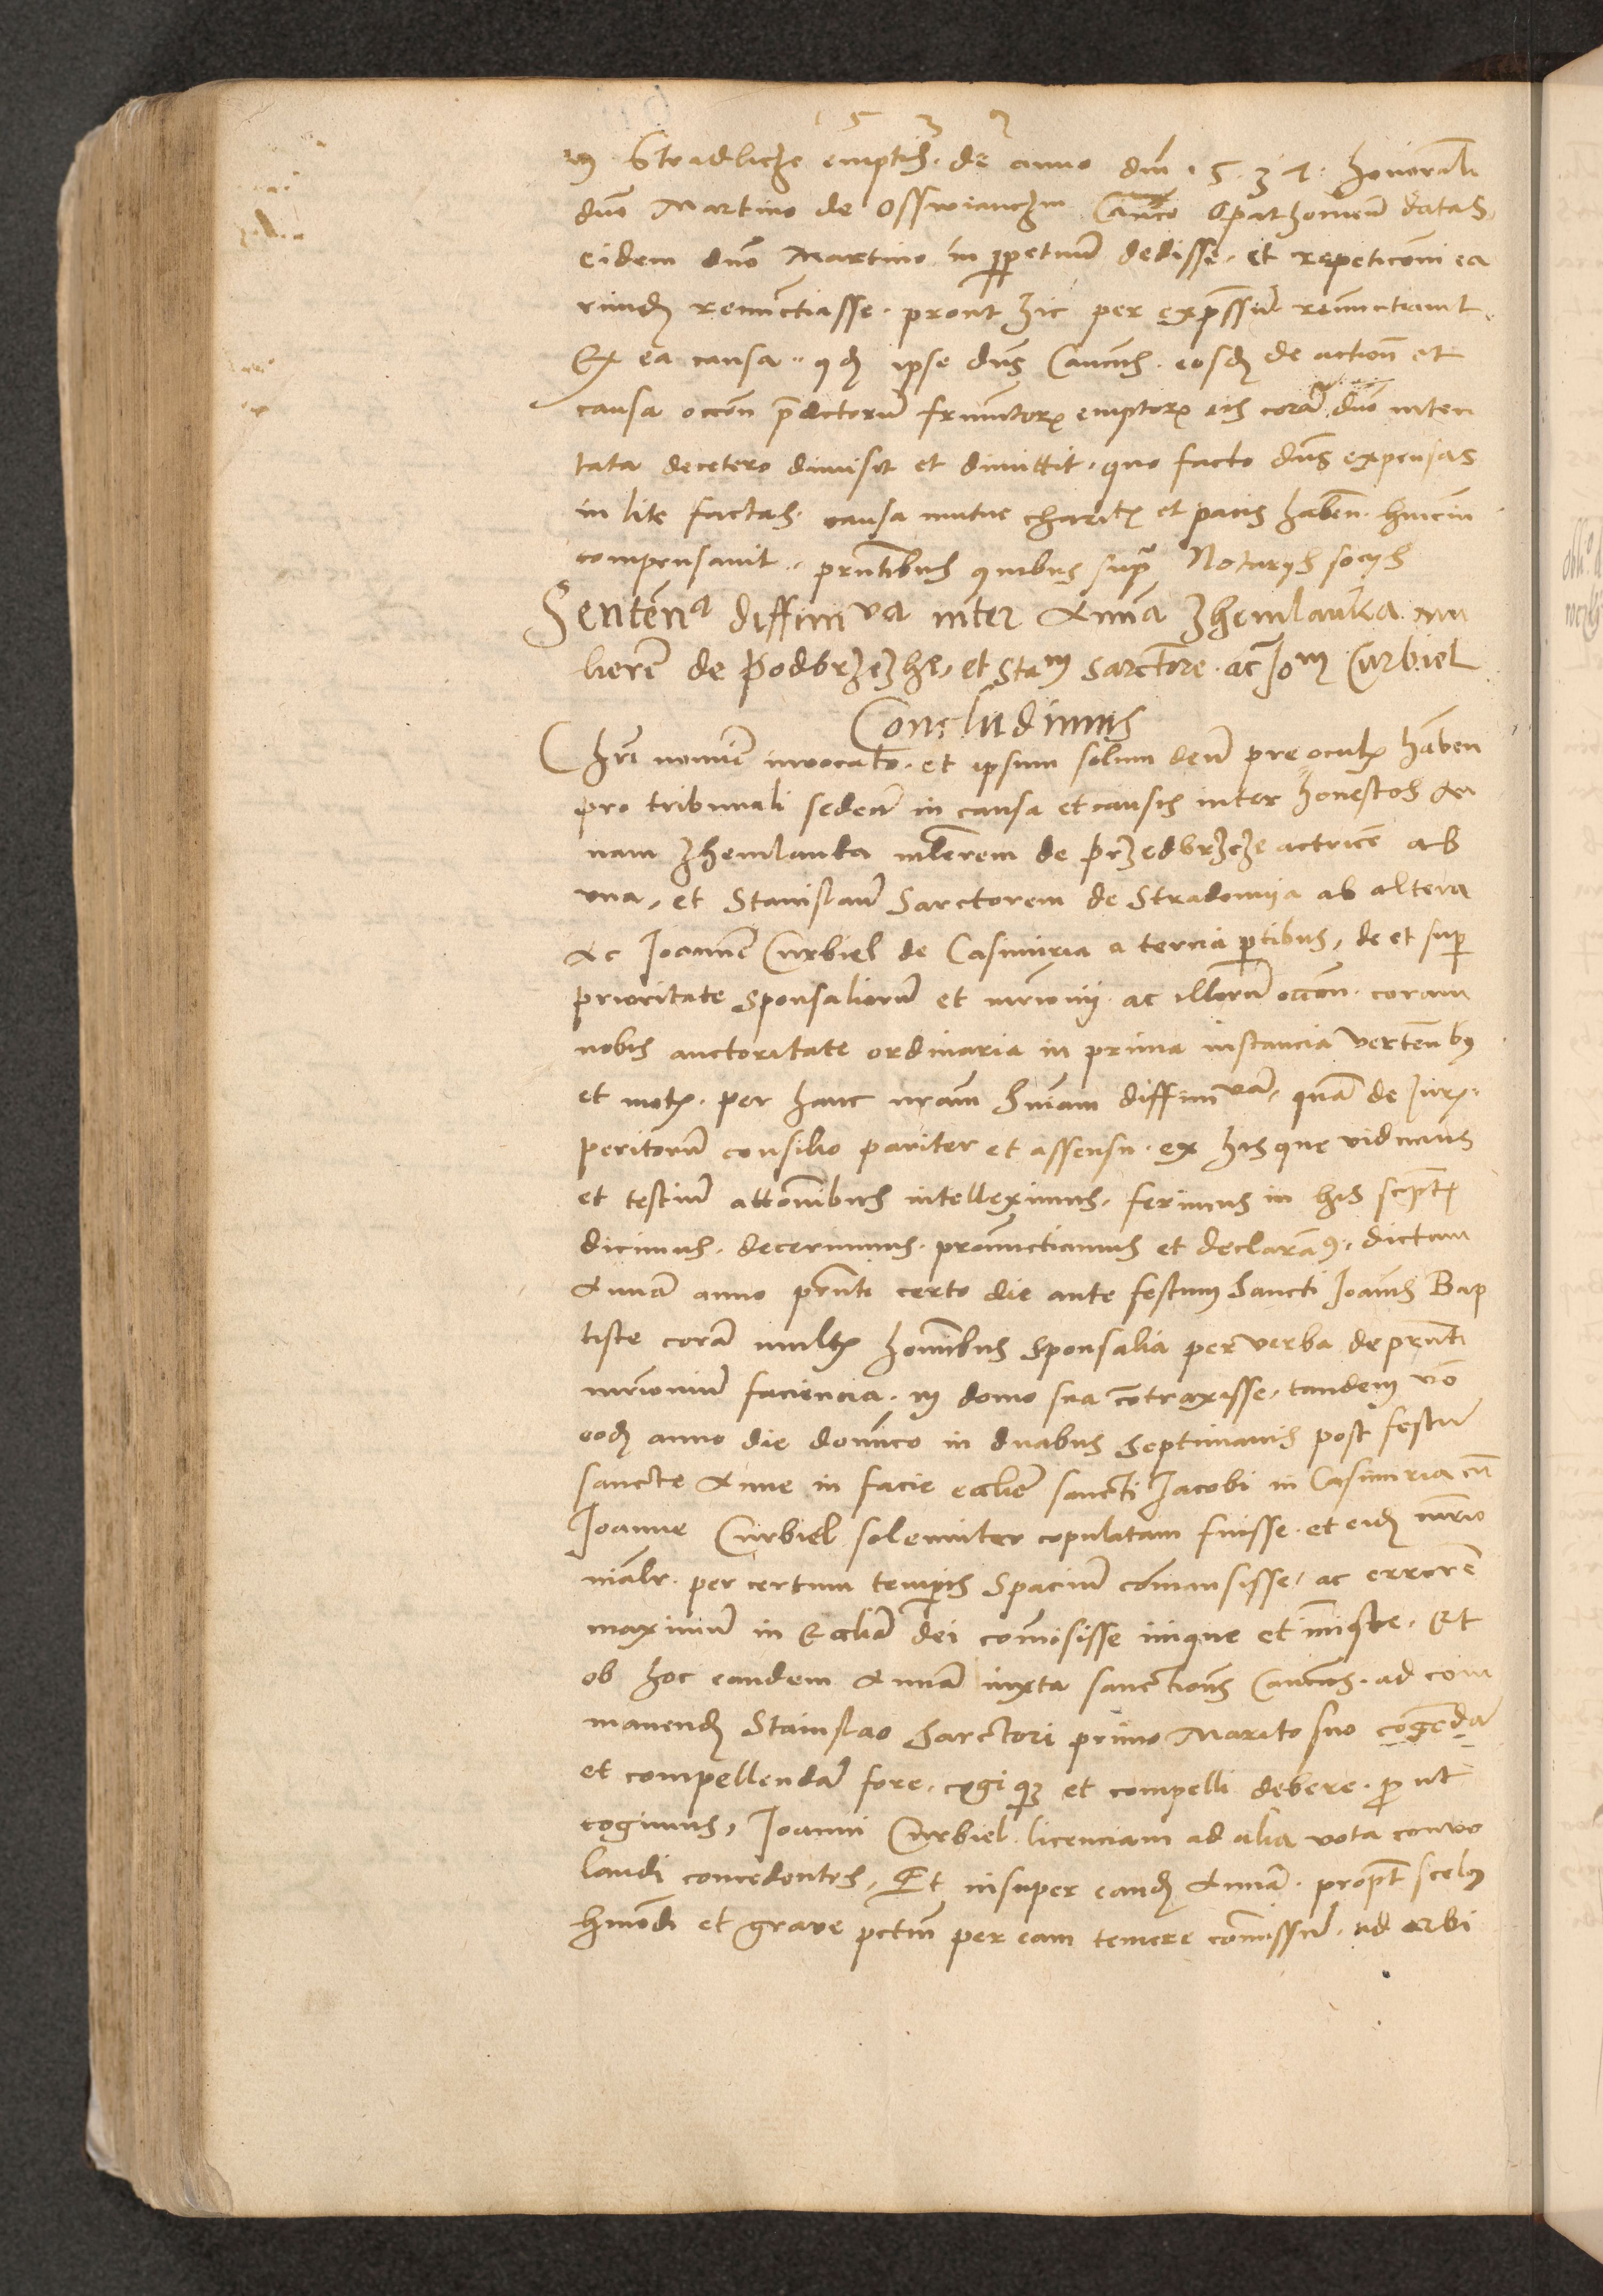 5 3 7
in Stradlicze emptis. de anno dni 1537. honorabili
dno Martino de Osswianczin Canco Opathomien datas
eidem dno Martino in perpetuum dedisse. et repeticoni ea
rund renunctiasse. prout hic per expressum renunctiant.
Ex ea causa. qd ipse dns Cancus. eosd de action et
causa occon predictorum frumtor emptor eis corā dno inten
tata decetero dimisit et dimittit. quo facto dns expensas
in lite factas. causa mutue charit et pacis haben. hincin
compensavit. prntibus quibus supra Notarijs socijs
Sentenа diffinva inter Annā Zhemlanka mu
lierē de Podbrzezhe, et Stam Sarctore. ac Jom Curbiel
Concludimus
Chri nomine invocato. et ipsum solum deū pre oculis haben
pro tribunali seden in causa et causis inter honestos An
nam Zhemlanka mlierem de Przedbrzeze actricē ab
una, et Stanislaū Sarctorem de Stradomija ab altera
Ac Joannē Curbiel de Casimiria a tercia ptibus, de et sup
prioritate Sponsaliorū et mrionij ac illorū occon. coram
nobis auctoritate ordinaria in prima instancia verten bus
et motis. per hanc nram Sniam diffinvam, quā de Juris
peritorū consilio pariter et assensu. ex his que vidimus
et testiū attonibus intelleximus, ferimus in his scptis
dicimus. decernimus. pronunctiamus et declaramus. dictam
Annā anno pnti certo die ante festum Sancti Joannis Bap
tiste corā multis hominibus Sponsalia per verba de prnti
mrioniū faciencia. in domo sua contraxisse, tandem vo
eod anno die dominico in duabus Septimanis post festū
sancte Anne in facie ecclie sancti Jacobi in Casimiria cū
Joanne Curbiel solenniter copulatam fuisse. et eid mrio
nialr. per certum tempis Spaciū comansisse, ac errorē
maximū in Ecclia dei comisisse inique et iniuste. Et
ob hoc eandem Annā iuxta sanctions Canoncas. ad com
manend Stanislao Sarctori primo Marito suo cogēdā
et compellendā fore. cogi qz et compelli debere. prout
cogimus, Joanni Curbiel licenciam ad alia vota convo
landi concedentes, Et insuper eand Annā. propt scelus
hmodi et grave pctm per eam temere comissū. ad Arbi